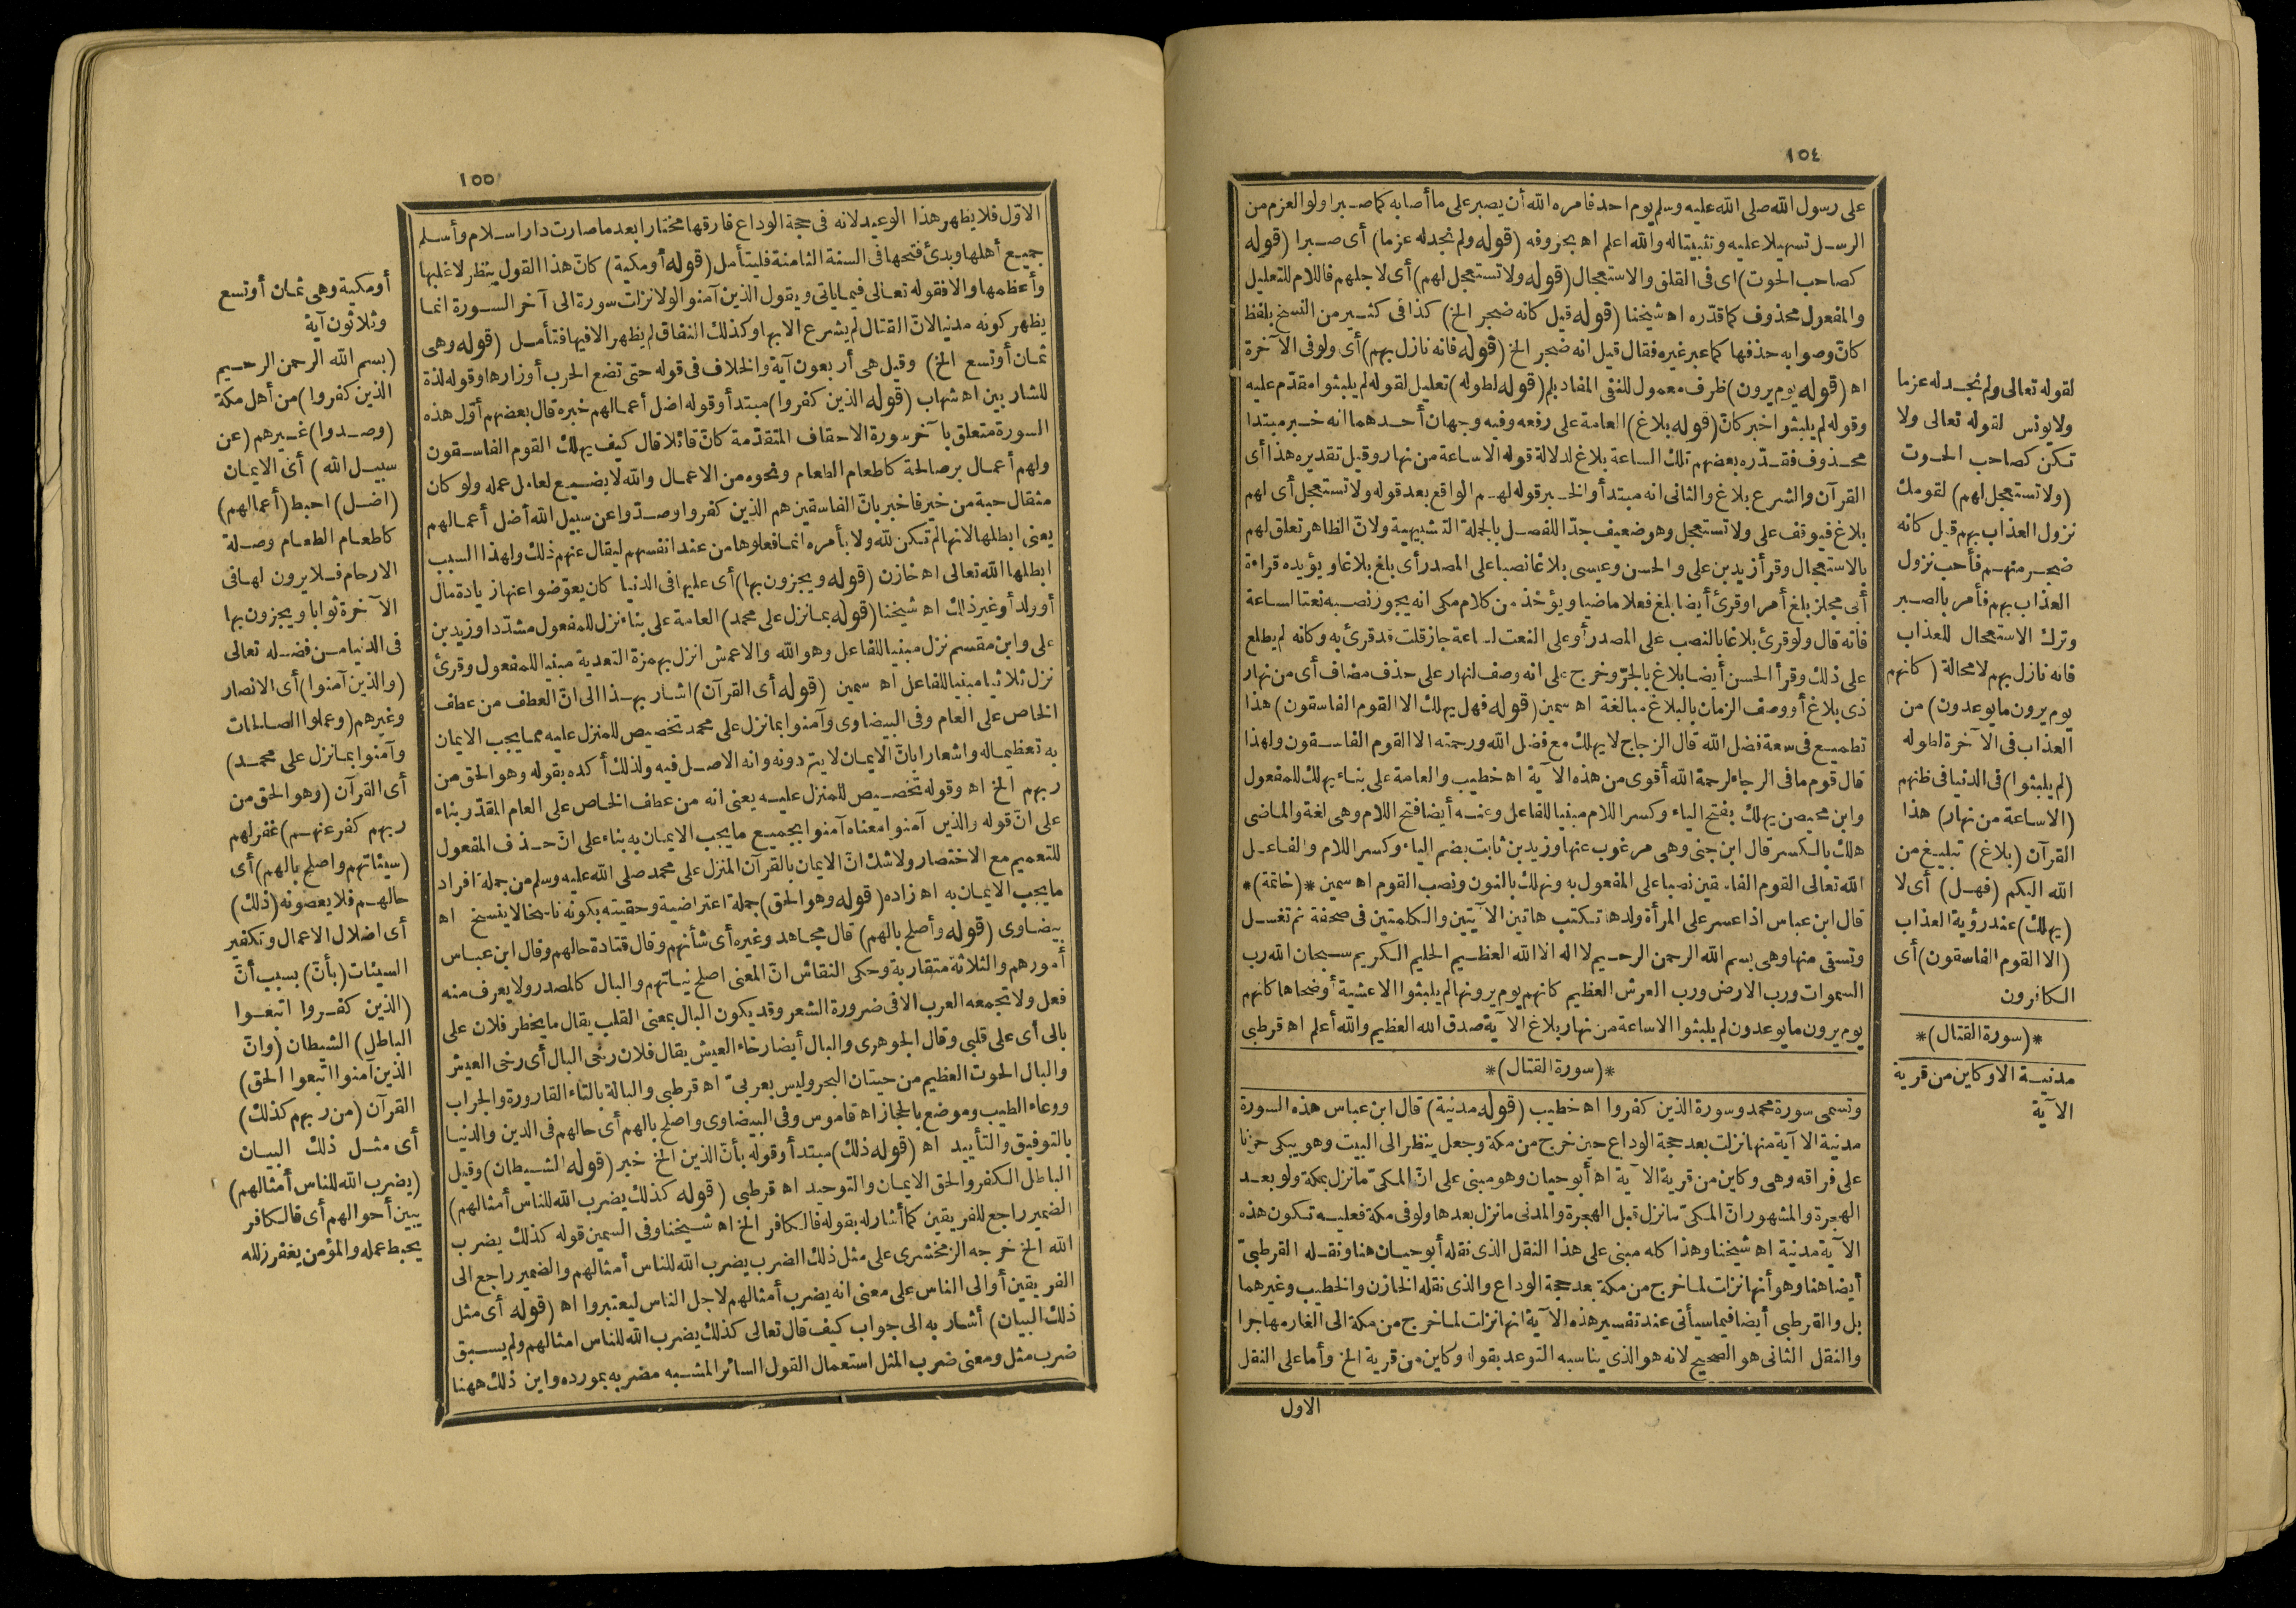 ١٥٤
على رسول الله صلى الله عليه وسلم يوم احد فامره الله أن يصبر على ما أصابه كما صبر اولو العزم من
الرسل تسهيلا عليه وتثبيتا له والله اعلم اه بحروفه (قوله ولم نجد له عزما) أى صبرا (قوله
كصاحب الحوت) اى فى القلق والاستعجال (قوله ولا تستعجل لهم) أى لاجلهم فاللام للتعليل
والمفعول محذوف كما قدّره اه شيخنا (قوله قيل كانه ضجر الخ) كذا فى كثير من النسخ بلفظ
كانّ وصوابه حذفها كما عبر غيره فقال قيل انه ضجر الخ (قوله فانه نازل بهم) أى ولو فى الآخرة
اه (قوله يوم يرون) ظرف معمول للنفى المفاد بلم (قوله لطوله) تعليل لقوله لم يلبثوا مقدّم عليه
وقوله لم يلبثوا خبر كانّ (قوله بلاغ) العامة على رفعه وفيه وجهان أحدهما انه خبر مبتدا
محذوف فقدّره بعضهم تلك الساعة بلاغ لدلالة قوله الا ساعة من نهار وقيل تقديره هذا أى
القرآن والشرع بلاغ والثانى انه مبتدأ والخبر قوله لهم الواقع بعد قوله ولا تستعجل أى لهم
بلاغ فيوقف على ولا تستعجل وهو ضعيف جدّا للفصل بالجملة التشبيهية ولانّ الظاهر تعلق لهم
بالاستعجال وقرأ زيد بن على والحسن وعيسى بلاغا نصبا على المصدر أى بلغ بلاغا ويؤيده قراءة
أبى مجلز بلغ أمرا وقرئ أيضا بلغ فعلا ماضيا ويؤخذ من كلام مكى انه يجوز نصبه نعتا لساعة
فانه قال ولو قرئ بلاغا بالنصب على المصدر أو على النعت لساعة جاز قلت قد قرئ به وكانه لم يطلع
على ذلك وقرأ الحسن أيضا بلاغ بالجرّ وخرج على انه وصف لنهار على حذف مضاف أى من نهار
ذى بلاغ أو وصف الزمان بالبلاغ مبالغة اه سمين (قوله فهل يهلك الا القوم الفاسقون) هذا
تطميع فى سعة فضل الله قال الزجاج لا يهلك مع فضل الله ورحمته الا القوم الفاسقون ولهذا
قال قوم ما فى الرجاء لرحمة الله أقوى من هذه الآية اه خطيب والعامة على بناء يهلك للمفعول
وابن محيصن يهلك بفتح الياء وكسر اللام مبنيا للفاعل وعنه أيضا فتح اللام وهى لغة والماضى
هلك بالكسر قال ابن جنى وهى مرغوب عنها وزيد بن ثابت بضم الياء وكسر اللام والفاعل
الله تعالى القوم الفاسقين نصبا على المفعول به ونهلك بالنون ونصب القوم اه سمين *(خاتمة)*
قال ابن عباس اذا عسر على المرأة ولدها تكتب هاتين الآيتين والكلمتين فى صحفة ثم تغسل
وتسقى منها وهى بسم الله الرحمن الرحيم لا اله الا الله العظيم الحليم الكريم سبحان الله رب
السموات ورب الارض ورب العرش العظيم كانهم يوم يرونها لم يلبثوا الا عشية أو ضحاها كانهم
يوم يرون ما يوعدون لم يلبثوا الا ساعة من نهار بلاغ الآية صدق الله العظيم والله أعلم اه قرطبى
*(سورة القتال)*
وتسمى سورة محمد وسورة الذين كفروا اه خطيب (قوله مدنية) قال ابن عباس هذه السورة
مدنية الا آية منها نزلت بعد حجة الوداع حين خرج من مكة وجعل ينظر الى البيت وهو يبكى حزنا
على فراقه وهى وكاين من قرية الآية اه أبو حيان وهو مبنى على انّ المكىّ ما نزل بمكة ولو بعد
الهجرة والمشهور انّ المكىّ ما نزل قبل الهجرة والمدنى ما نزل بعدها ولو فى مكة فعليه تكون هذه
الآية مدنية اه شيخنا وهذا كله مبنى على هذا النقل الذى نقله أبو حيان هنا ونقله القرطبىّ
أيضا هنا وهو أنها نزلت لما خرج من مكة بعد حجة الوداع والذى نقله الخازن والخطيب وغيرهما
بل والقرطبى أيضا فيما سيأتى عند تفسير هذه الآية انها نزلت لما خرج من مكة الى الغار مهاجرا
والنقل الثانى هو الصحيح لانه هو الذى يناسبه التوعد بقوله وكاين من قرية الخ وأما على النقل
الاول
لقوله تعالى ولم نجد له عزما
ولا يونس لقوله تعالى ولا
تكن كصاحب الحوت
(ولا تستعجل لهم) لقومك
نزول العذاب بهم قيل كانه
ضجر منهم فأحب نزول
العذاب بهم فأمر بالصبر
وترك الاستعجال للعذاب
فانه نازل بهم لا محالة (كانهم
يوم يرون ما يوعدون) من
العذاب فى الآخرة لطوله
(لم يلبثوا) فى الدنيا فى ظنهم
(الا ساعة من نهار) هذا
القرآن (بلاغ) تبليغ من
الله اليكم (فهل) أى لا
(يهلك) عند رؤية العذاب
(الا القوم الفاسقون) أى
الكافرون
*(سورة القتال)*
مدنية الا وكاين من قرية
الآية
١٥٥
الاوّل فلا يظهر هذا الوعيد لانه فى حجة الوداع فارقها مختارا بعد ما صارت دار اسلام وأسلم
جميع أهلها وبدئ فتحها فى السنة الثامنة فليتأمل (قوله أو مكية) كانّ هذا القول ينظر لاغلبها
وأعظمها والا فقوله تعالى فيما ياتى ويقول الذين آمنوا لولا نزلت سورة الى آخر السورة انما
يظهر كونه مدنيا لانّ القتال لم يشرع الا بها وكذلك النفاق لم يظهر الا فيها فتأمل (قوله وهى
ثمان أو تسع الخ) وقيل هى أربعون آية والخلاف فى قوله حتى تضع الحرب أوزارها وقوله لذة
للشاربين اه شهاب (قوله الذين كفروا) مبتدأ وقوله اضل أعمالهم خبره قال بعضهم أوّل هذه
السورة متعلق بآخر سورة الاحقاف المتقدّمة كانّ قائلا قال كيف يهلك القوم الفاسقون
ولهم أعمال بر صالحة كاطعام الطعام ونحوه من الاعمال والله لا يضيع لعامل عمله ولو كان
مثقال حبة من خير فاخبر بانّ الفاسقين هم الذين كفروا وصدّوا عن سبيل الله أضل أعمالهم
يعنى ابطلها لانها لم تكن لله ولا بأمره انما فعلوها من عند انفسهم ليقال عنهم ذلك ولهذا السبب
ابطلها الله تعالى اه خازن (قوله ويجزون بها) أى عليها فى الدنيا كان يعوّضوا عنها زيادة مال
أو ولد أو غير ذلك اه شيخنا (قوله بما نزل على محمد) العامة على بناء نزل للمفعول مشدّدا وزيد بن
على وابن مقسم نزل مبنيا للفاعل وهو الله والاعمش انزل بهمزة التعدية مبنيا للمفعول وقرئ
نزل ثلاثيا مبنيا للفاعل اه سمين (قوله أى القرآن) اشار بهذا الى انّ العطف من عطف
الخاص على العام وفى البيضاوى وآمنوا بما نزل على محمد تخصيص للمنزل عليه مما يجب الايمان
به تعظيما له واشعارا بانّ الايمان لا يتم دونه وانه الاصل فيه ولذلك أكده بقوله وهو الحق من
ربهم الخ اه وقوله تخصيص للمنزل عليه يعنى انه من عطف الخاص على العام المقدّر بناء
على انّ قوله والذين آمنوا معناه آمنوا بجميع ما يجب الايمان به بناء على انّ حذف المفعول
للتعميم مع الاختصار ولا شك انّ الايمان بالقرآن المنزل على محمد صلى الله عليه وسلم من جملة افراد
ما يجب الايمان به اه زاده (قوله وهو الحق) جملة اعتراضية وحقيته بكونه ناسخا لا ينسخ اه
بيضاوى (قوله وأصلح بالهم) قال مجاهد وغيره أى شأنهم وقال قتادة حالهم وقال ابن عباس
أمورهم والثلاثة متقاربة وحكى النقاش انّ المعنى اصلح نياتهم والبال كالمصدر ولا يعرف منه
فعل ولا تجمعه العرب الا فى ضرورة الشعر وقد يكون البال بمعنى القلب يقال ما يخطر فلان على
بالى أى على قلبى وقال الجوهرى والبال أيضا رخاء العيش يقال فلان رخى البال أى رخى العيش
والبال الحوت العظيم من حيتان البحر وليس بعربىّ اه قرطبى والبالة بالتاء القارورة والجراب
ووعاء الطيب وموضع بالحجاز اه قاموس وفى البيضاوى واصلح بالهم أى حالهم فى الدين والدنيا
بالتوفيق والتأييد اه (قوله ذلك) مبتدأ وقوله بأنّ الذين الخ خبر (قوله الشيطان) وقيل
الباطل الكفر والحق الايمان والتوحيد اه قرطبى (قوله كذلك يضرب الله للناس أمثالهم)
الضمير راجع للفريقين كما أشار له بقوله فالكافر الخ اه شيخنا وفى السمين قوله كذلك يضرب
الله الخ خرجه الزمخشرى على مثل ذلك الضرب يضرب الله للناس أمثالهم والضمير راجع الى
الفريقين أو الى الناس على معنى انه يضرب أمثالهم لاجل الناس ليعتبروا اه (قوله أى مثل
ذلك البيان) أشار به الى جواب كيف قال تعالى كذلك يضرب الله للناس امثالهم ولم يسبق
ضرب مثل ومعنى ضرب المثل استعمال القول السائر المشبه مضربه بمورده واين ذلك ههنا
أو مكية وهى ثمان أو تسع
وثلاثون آية
(بسم الله الرحمن الرحيم
الذين كفروا) من أهل مكة
(وصدوا) غيرهم (عن
سبيل الله) أى الايمان
(اضل) احبط (أعمالهم)
كاطعام الطعام وصلة
الارحام فلا يرون لها فى
الآخرة ثوابا ويجزون بها
فى الدنيا من فضله تعالى
(والذين آمنوا) أى الانصار
وغيرهم (وعملوا الصالحات
وآمنوا بما نزل على محمد)
أى القرآن (وهو الحق من
ربهم كفر عنهم) غفر لهم
(سيئاتهم واصلح بالهم) أى
حالهم فلا يعصونه (ذلك)
أى اضلال الاعمال وتكفير
السيئات (بأنّ) بسبب أنّ
(الذين كفروا اتبعوا
الباطل) الشيطان (وانّ
الذين آمنوا اتبعوا الحق)
القرآن (من ربهم كذلك)
أى مثل ذلك البيان
(يضرب الله للناس أمثالهم)
يبين أحوالهم أى فالكافر
يحبط عمله والمؤمن يغفر زلله